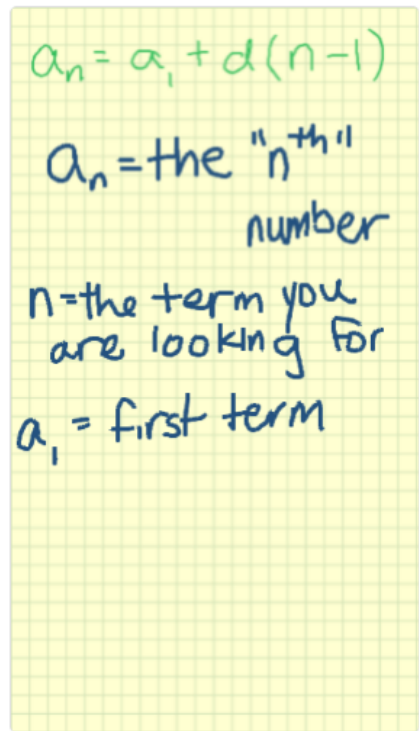 aₙ = a₁ + d(n-1)
aₙ = the "nᵗʰ"
number
n = the term you
are looking for
a₁ = first term